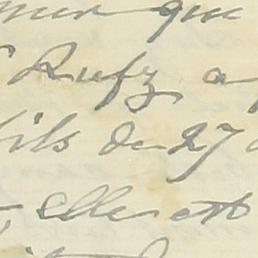 qui
Rufz a
fils de 27
, elle est